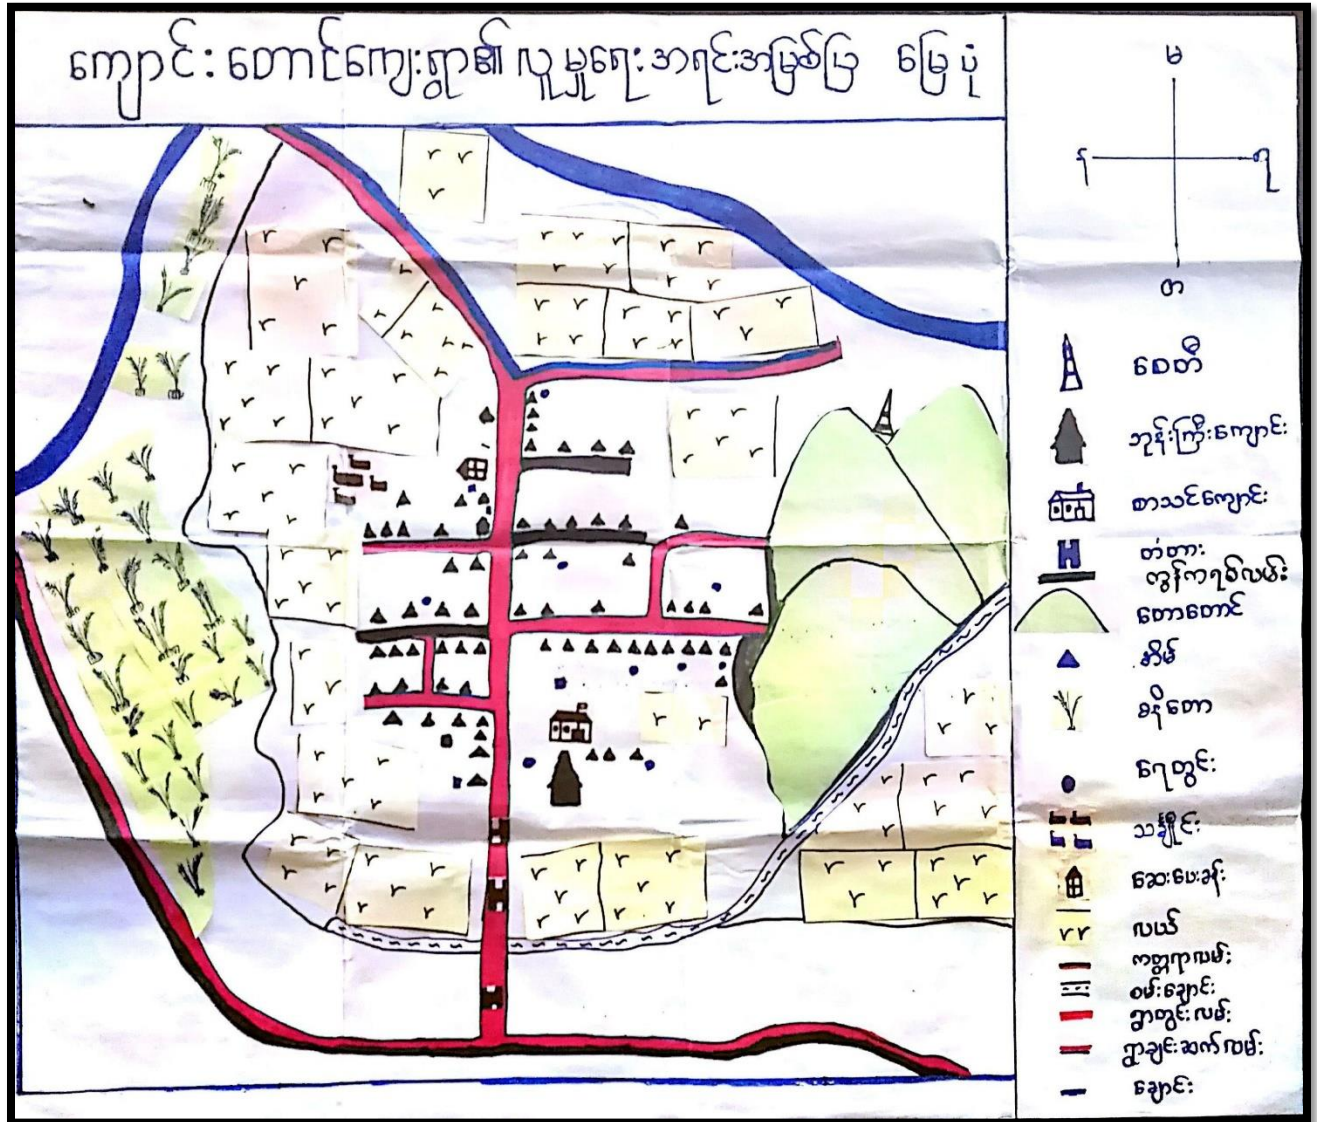 ကျောင်းတောင်ကျေးရွာ၏ လူမှုရေးအရင်းအမြစ်ပြ မြေပုံ
မ
န
ရ
တ
စေတီ
ဘုန်းကြီးကျောင်း
စာသင်ကျောင်း
တံတား
ကွန်ကရစ်လမ်း
တောတောင်
အိမ်
ဓနိတော
ရေတွင်း
သင်္ချိုင်း
ဆေးပေးခန်း
လယ်
ကတ္တရာလမ်း
စမ်းချောင်း
ရွာတွင်းလမ်း
ရွာချင်းဆက်လမ်း
ချောင်း